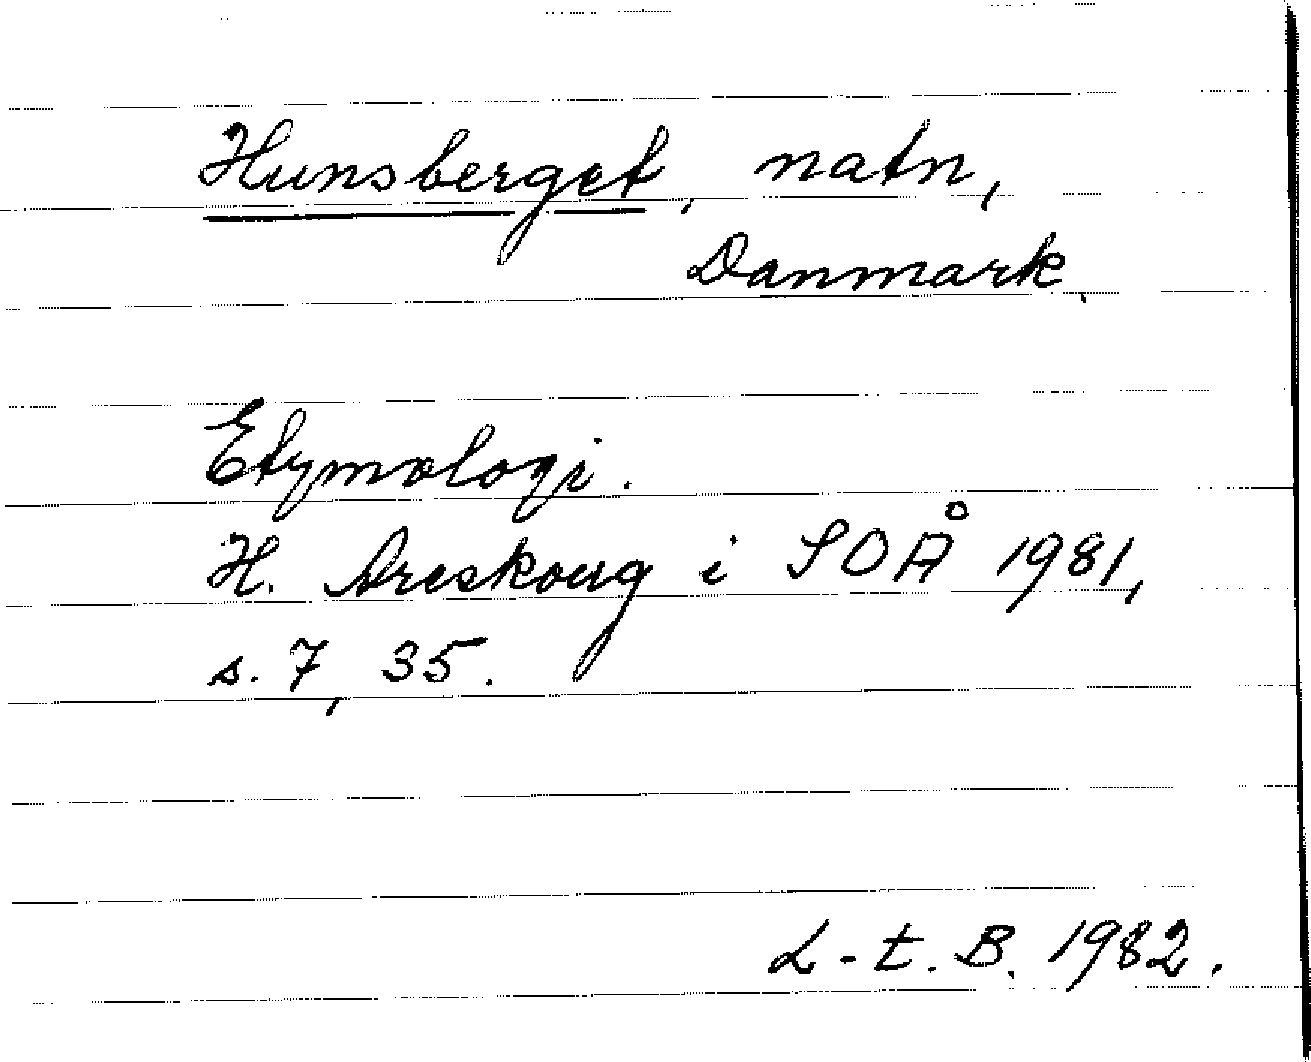 Hunsberget, natn,
Danmark.
Etymologi.
H. Areskoug i SOÅ 1981,
s. 7, 35.
L-t. B. 1982.